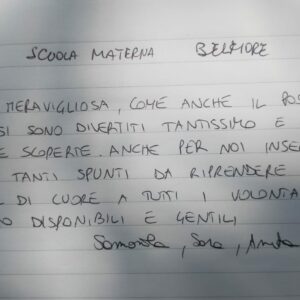 SCUOLA MATERNA BELFIORE
MERAVIGLIOSA, COME ANCHE IL POS
SI SONO DIVERTITI TANTISSIMO E
E SCOPERTE. ANCHE PER NOI INSE
TANTI SPUNTI DA RIPRENDERE
DI CUORE A TUTTI I VOLONTA
O DISPONIBILI E GENTILI
, Sara,